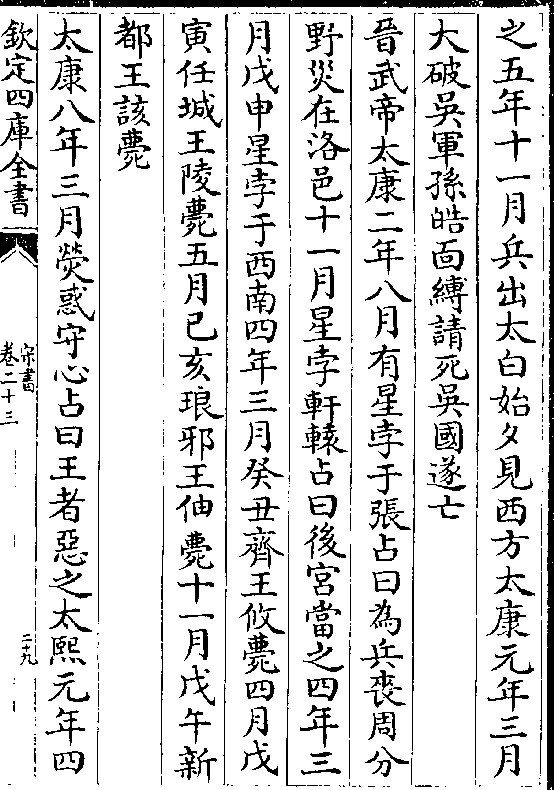 之五年十一月兵出太白始夕見西方太康元年三月
大破吳軍孫皓面縛請死吳國遂亡
晉武帝太康二年八月有星孛于張占曰為兵喪周分
野災在洛邑十一月星孛軒轅占曰後宮當之四年三
月戊申星孛于西南四年三月癸丑齊王攸薨四月戊
寅任城王陵薨五月己亥琅邪王伷薨十一月戊午新
都王該薨
太康八年三月熒惑守心占曰王者惡之太熙元年四
欽定四庫全書
宋書
卷二十三
二十九